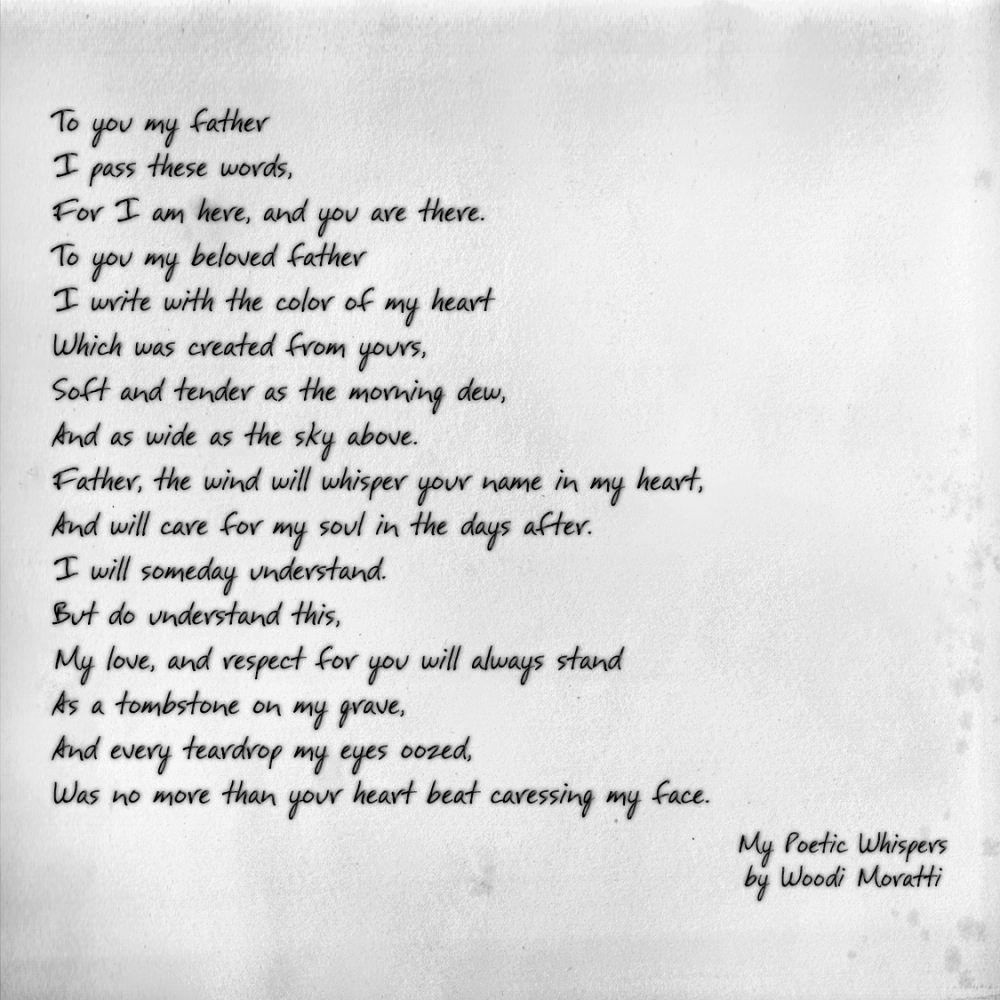 To you my father
I pass these words,
For I am here, and you are there.
To you my beloved father
I write with the color of my heart
Which was created from yours,
Soft and tender as the morning dew,
And as wide as the sky above.
Father, the wind will whisper your name in my heart,
And will care for my soul in the days after.
I will someday understand.
But do understand this,
My love, and respect for you will always stand
As a tombstone on my grave,
And every teardrop my eyes oozed,
Was no more than your heart beat caressing my face.
My Poetic Whispers
by Woodi Moratti